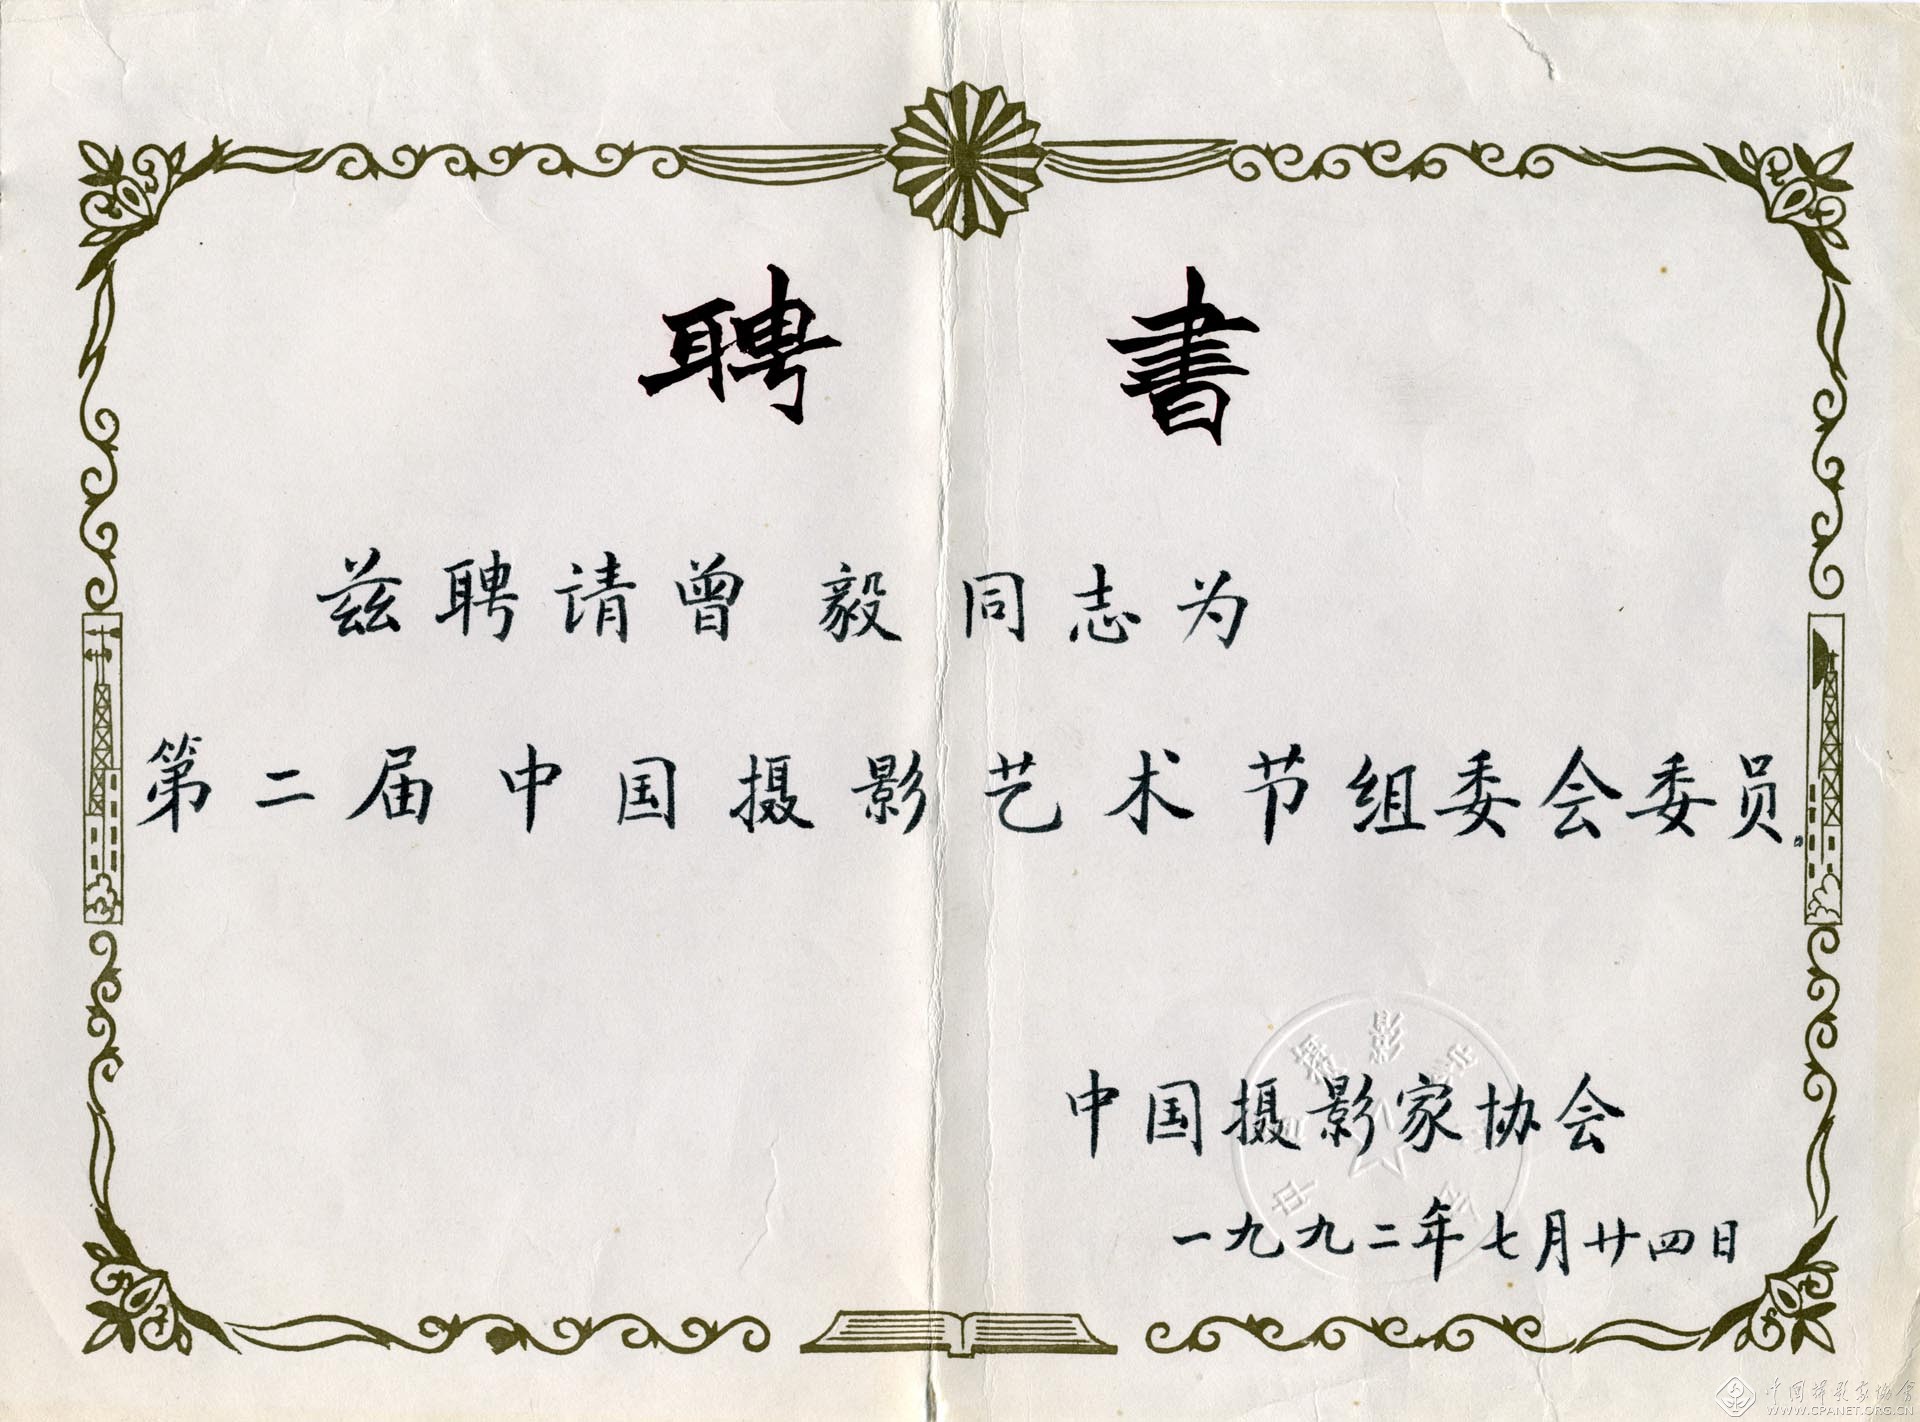 聘書
兹聘请曾毅同志为
第二届中国摄影艺术节组委会委员。
中国摄影家协会
一九九二年七月廿四日
中国摄影家协会
WWW.CPANET.ORG.CN